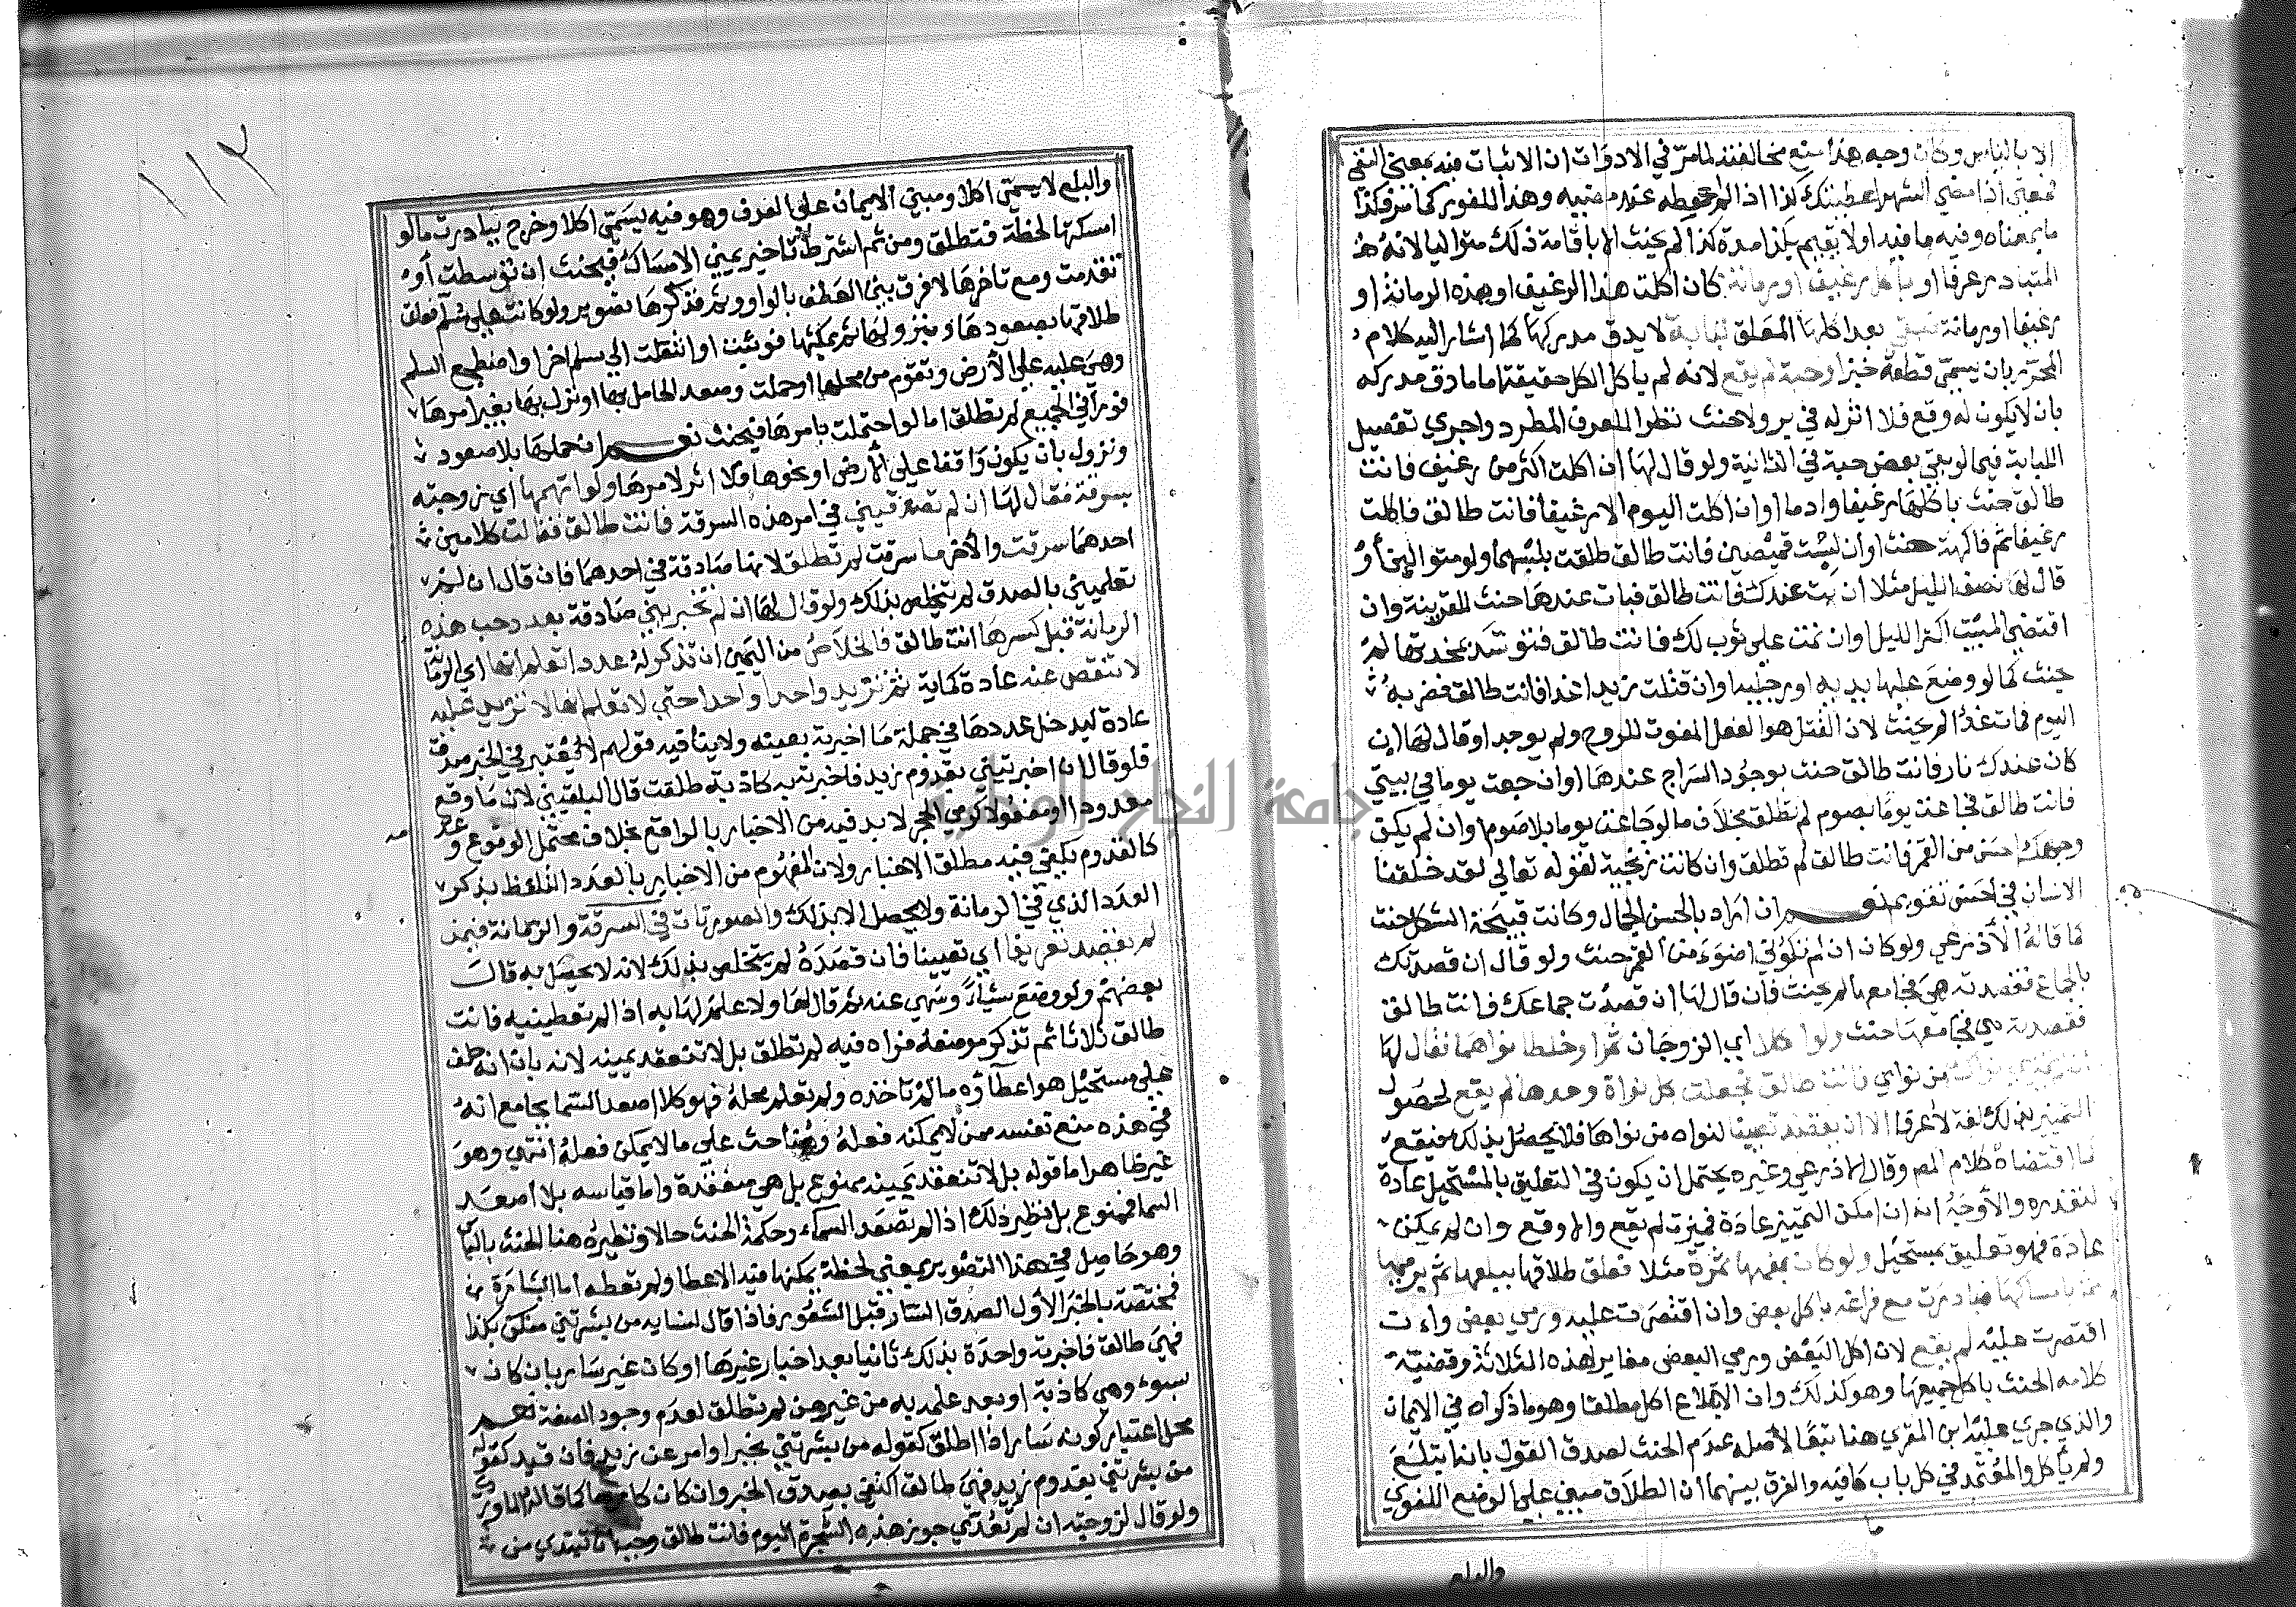 الا بالياس وكان وجه هذا مع مخالفته لما مر في الادوات ان الاثبات فيه بمعنى النفي
فمعنى اذا مضى الشهر اعطيتك كذا اذا لم اعطه عند مضيه وهذا للفور كما تقرر فكذا
ما بمعناه وفيه ما فيه اولا يقيم بكذا مدة كذا لم يحنث الا باقامة ذلك متواليا لانه هُ
المتبادر عرفا او باكل رغيف او رمانة كان اكلت هذا الرغيف او هذه الرمانة او
رغيفا او رمانة فبقي بعد اكلها المعلق به لبابة لا يدق مدركها كما اشار اليه كلام
المحرر بان يسمى قطعة خبز او حبة لم يقع لانه لم ياكل الكل حقيقة اما ما دق مدركه
بان لا يكون له وقع فلا اثر له في بر ولا حنث نظرا للعرف المطرد واجري تفصيل
اللبابة فيما لو بقي بعض حبة في الثانية ولو قال لها ان اكلت اكثر من رغيف فانت
طالق حنث باكلها رغيفا وادما او ان اكلت اليوم الا رغيفا فانت طالق فاكلت
رغيفا ثم فاكهة حنث او ان لبست قميصين فانت طالق طلقت بلبسهما ولو متواليين او
قال لها نصف الليل مثلا ان بت عندك فانت طالق فبات عندها حنث للقرينة وان
اقتضى المبيت اكثر الليل او ان نمت على ثوب لك فانت طالق فتوسد مخدتها لم
يحنث كما لو وضع عليها يديه او رجليه او ان قتلت زيدا غدا فانت طالق فضربه
اليوم فمات غدا لم يحنث لان القتل هو الفعل المفوت للروح ولم يوجد او قال لها ان
كان عندك نار فانت طالق حنث بوجود السراج عندها او ان جعت يوما في بيتي
فانت طالق فجاعت يوما بصوم لم تطلق بخلاف ما لو جاعت يوما بلا صوم او ان لم يكن
وجهك احسن من القمر فانت طالق لم تطلق وان كانت زنجية لقوله تعالى لقد خلقنا
الانسان في احسن تقويم نعم ان اراد بالحسن الجمال وكانت قبيحة الشكل حنث
كما قاله الاذرعي ولو كان ان لم تكوني اضوء من القمر حنث ولو قال ان قصدتك
بالجماع فقصدته هي فجامع لم يحنث فان قال لها ان قصدت جماعك فانت طالق
فقصدته هي فجامعها حنث ولو اكلا اي الزوجان تمرا وخلطا نواهما فقال لها
ان لم تميزي نواك من نواي فانت طالق فجعلت كل نواة وحدها لم يقع لحصول
التمييز بذلك لغة لا عرفا الا ان يقصد تعيينا لنواه من نواها فلا يحصل بذلك فيقع
كما اقتضاه كلام المص وقال الاذرعي وغيره يحتمل ان يكون في التعليق بالمستحيل عادة
لتعذره والاوجه انه ان امكن التمييز عادة فميزت لم يقع والا وقع وان لم يمكن
عادة فهو تعليق بمستحيل ولو كان بفمها تمرة مثلا فعلق طلاقها ببلعها ثم برميها
ثم بامساكها فبادرت مع فراغه باكل بعض وان اقتصرت عليه ورمي بعض وان
اقتصرت عليه لم يقع لان اكل البعض ورمي البعض مغاير لهذه الثلاثة وقضية
كلامه الحنث باكل جميعها وهو كذلك وان الابتلاع اكل مطلقا وهو ما ذكراه في الايمان
والذي جرى عليه ابن المقري هنا تبعا لاصله عدم الحنث لصدق القول بانه ابتلع
ولم ياكل والمعتمد في كل باب ما فيه والفرق بينهما ان الطلاق مبني على الوضع اللغوي
والبلع
١١٢
والبلع لا يسمى اكلا ومبنى الايمان على العرف وهو فيه يسمى اكلا وخرج ببادرت ما لو
امسكتها لحظة فتطلق ومن ثم اشترط تاخير يمين الامساك فيحنث ان توسطت او
تقدمت ومع تاخرها لا فرق بين العطف بالواو وثم فذكرها تصوير ولو كانت على سلم فعلق
طلاقها بصعودها ونزولها ثم بمكثها فوثبت او انتقلت الى سلم اخر او اضطجع السلم
وهي عليه على الارض وتقوم من محلها او حملت وصعد الحامل بها او نزل بها بغير امرها
فورا في الجميع لم تطلق اما لو احتملت بامرها فيحنث نعم ان حملها بلا صعود
ونزول بان يكون واقفا على الارض او نحوها فلا اثر لامرها ولو اتهمها اي زوجته
بسرقة فقال لها ان لم تصدقيني في امر هذه السرقة فانت طالق فقالت كلامين
احدهما سرقت والاخر ما سرقت لم تطلق لانها صادقة في احدهما فان قال ان لم
تعلميني بالصدق لم تتخلص بذلك ولو قال لها ان لم تخبريني صادقة بعدد حب هذه
الرمانة قبل كسرها انت طالق فالخلاص من اليمين ان تذكر له عددا تعلم انها اي الرمانة
لا تنقص عنه عادة كماية ثم تزيد واحدا واحدا حتى لا تعلم انها لا تزيد عليه
عادة ليدخل عددها في جملة ما اخبرته بعينه ولا ينافيه قولهم لا يعتبر في الخبر صدق
فلو قال ان اخبرتيني بقدوم زيد فاخبرته به كاذبة طلقت قال البلقيني لان ما وقع
معدودا او مفعولا كرمي الحجر لا بد فيه من الاخبار بالواقع بخلاف محتمل الوقوع وعدمه
كالقدوم يكفي فيه مطلق الاخبار ولان المفهوم من الاخبار بالعدد التلفظ بذكر
العدد الذي في الرمانة ولا يحصل الا بذلك والصورتان في السرقة والرمانة فيمن
لم يقصد تعريفا اي تعيينا فان قصده لم يتخلص بذلك لانه لا يحصل به قال
بعضهم ولو وضع شيئا وسهى عنه ثم قال لها ولا علم لها به اذا لم تعطينيه فانت
طالق ثلاثا ثم تذكر موضعه فراه فيه لم تطلق بل لا تنعقد يمينه لانه بان انه حلف
على مستحيل هو اعطاؤه ما لم تاخذه ولم تعلم محله فهو كلا اصعد السما بجامع انه
في هذه منع نفسه ممن لا يمكنه فعله وهنا حث على ما لا يمكن فعله انتهى وهو
غير ظاهر اما قوله بل لا تنعقد يمينه ممنوع بل هي منعقدة واما قياسه بلا اصعد
السما فممنوع بل نظير ذلك اذا لم تصعد السماء وحكمه الحنث حالا ونظيره هنا الحنث بالياس
وهو حاصل في هذا التصوير بمعنى لحظة يمكنها فيه الاعطا ولم تعطه اما البشارة
فمختصة بالخبر الاول الصدق السار قبل الشعور فاذا قال لنسايه من بشرتني منكن بكذا
فهي طالق فاخبرته واحدة بذلك ثانيا بعد اخبار غيرها او كان غير سار بان كان
بسوء وهي كاذبة او بعد علمه به من غيرهن لم تطلق لعدم وجود الصفة نعم
محل اعتبار كونه سارا اذا اطلق كقوله من بشرتني بخبر او امر عن زيد فان قيد كقوله
من بشرتني بقدوم زيد فهي طالق اكتفي بصدق الخبر وان كان كارها كما قاله الماوردي
ولو قال لزوجته ان لم تعدي جوز هذه الشجرة اليوم فانت طالق وجب ان تبتدي من
جامعة النجاح الوطنية